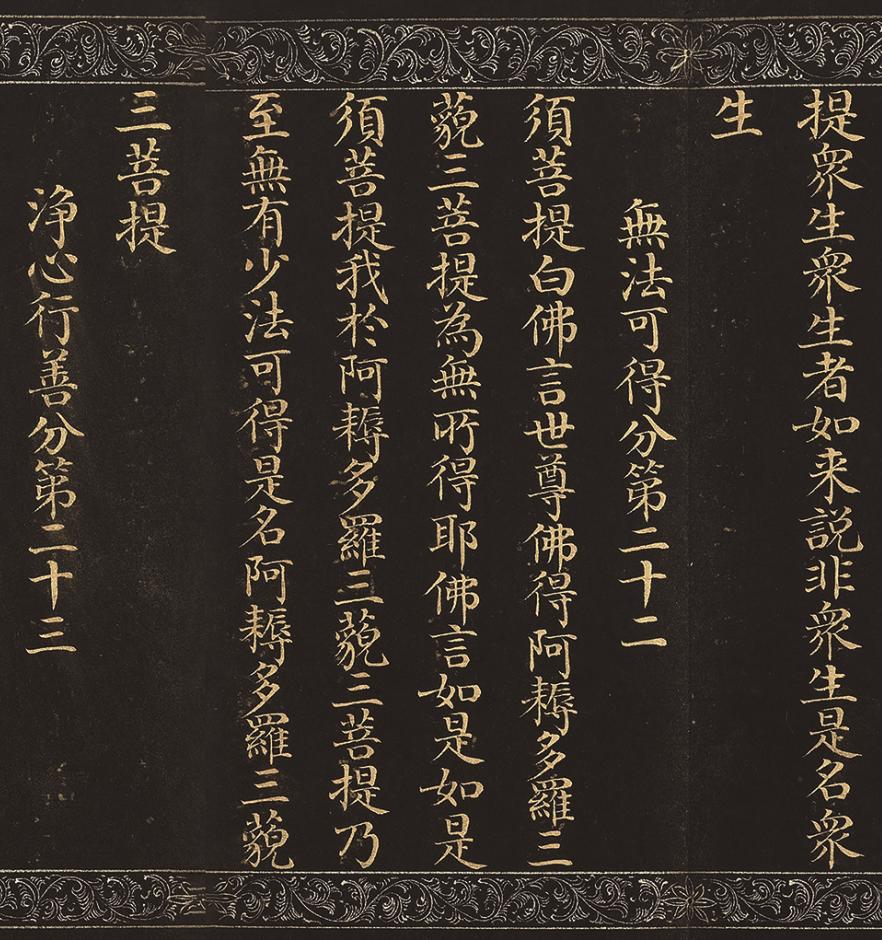 提衆生衆生者如来説非衆生是名衆
生
無法可得分第二十二
須菩提白佛言世尊佛得阿耨多羅三
藐三菩提為無所得耶佛言如是如是
須菩提我於阿耨多羅三藐三菩提乃
至無有少法可得是名阿耨多羅三藐
三菩提
淨心行善分第二十三